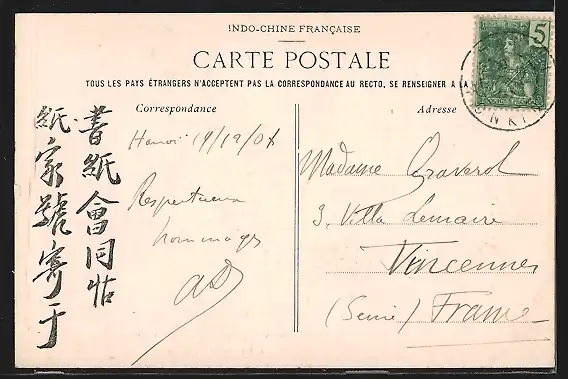 INDO-CHINE FRANÇAISE
CARTE POSTALE
TOUS LES PAYS ÉTRANGERS N'ACCEPTENT PAS LA CORRESPONDANCE AU RECTO, SE RENSEIGNER A LA
5
Correspondance
Adresse
書紙會同
紙家號寄于
Hanoi 19/12/0
Respectueux
hommages
Madame Graverol
3, Villa Lemaire
Vincennes
(Seine) France